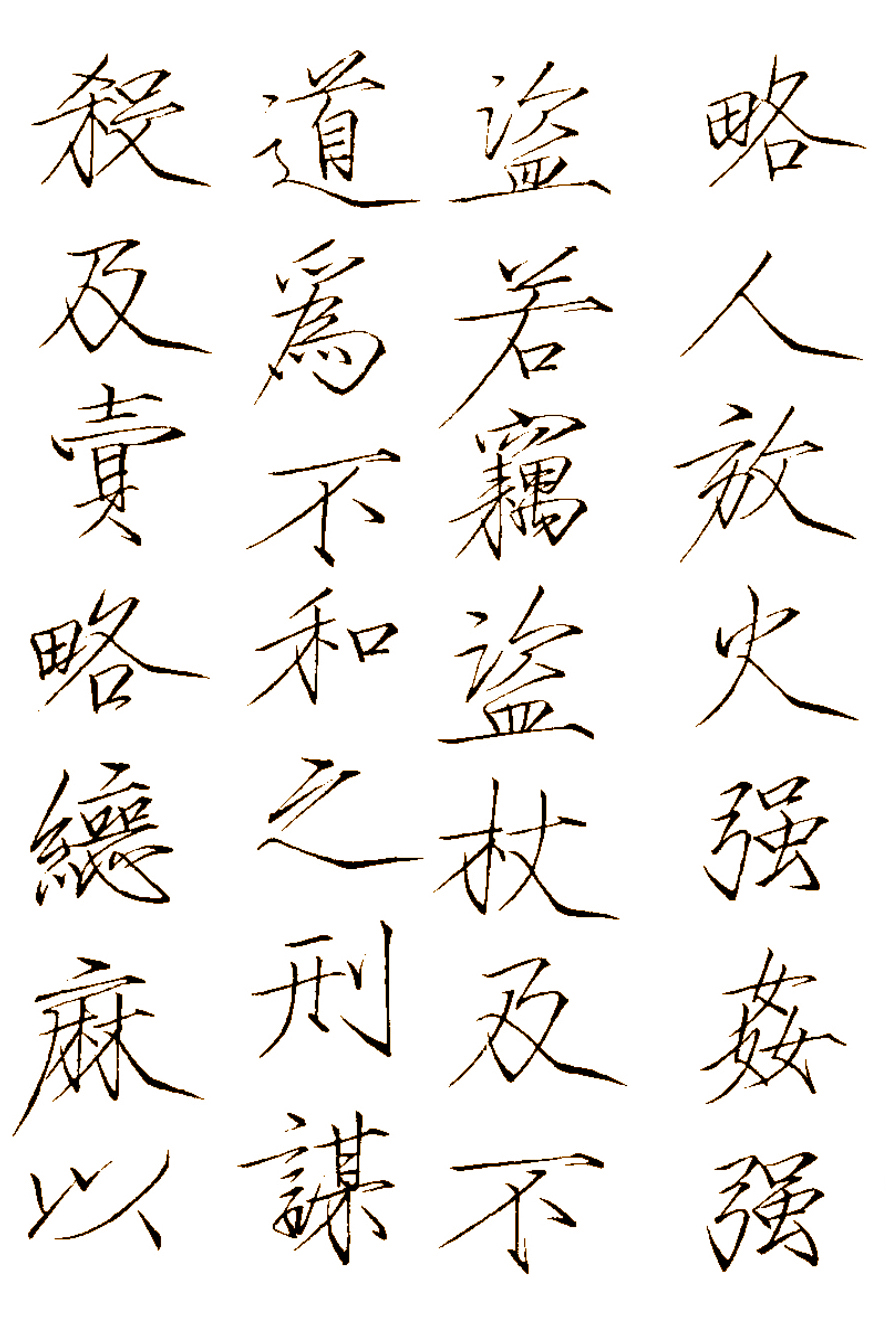 略人放火强姦强
盜若竊盜杖及不
道爲不和之刑謀
殺及賣略緦麻以